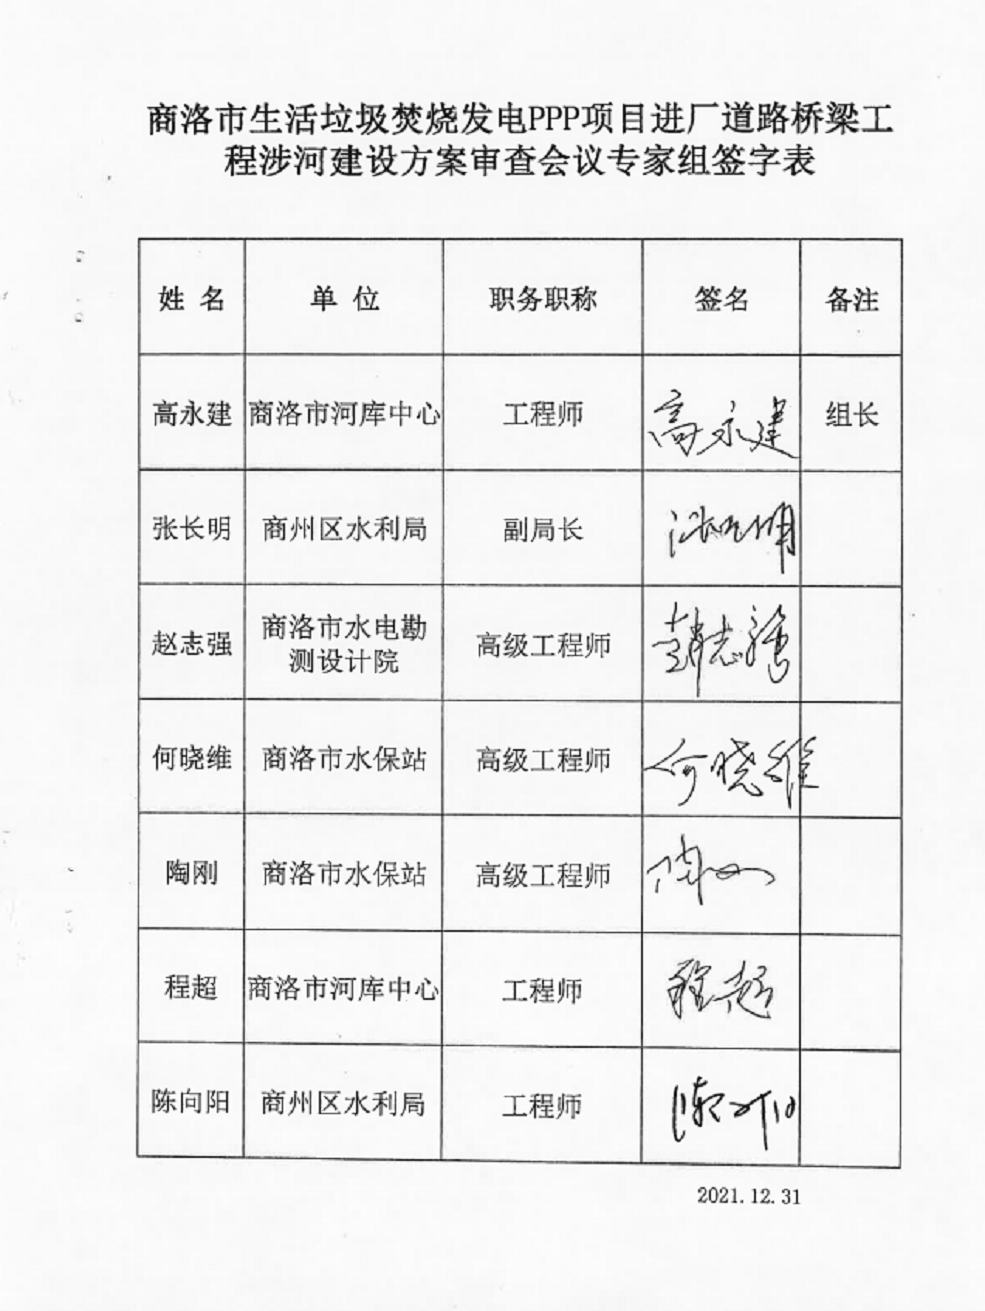 商洛市生活垃圾焚烧发电PPP项目进厂道路桥梁工
程涉河建设方案审查会议专家组签字表
姓 名 单 位 职务职称 签名 备注
高永建 商洛市河库中心 工程师 高永建 组长
张长明 商州区水利局 副局长 张长明
赵志强 商洛市水电勘
测设计院 高级工程师 赵志强
何晓维 商洛市水保站 高级工程师 何晓维
陶刚 商洛市水保站 高级工程师 陶刚
程超 商洛市河库中心 工程师 程超
陈向阳 商州区水利局 工程师 陈向阳
2021.12.31